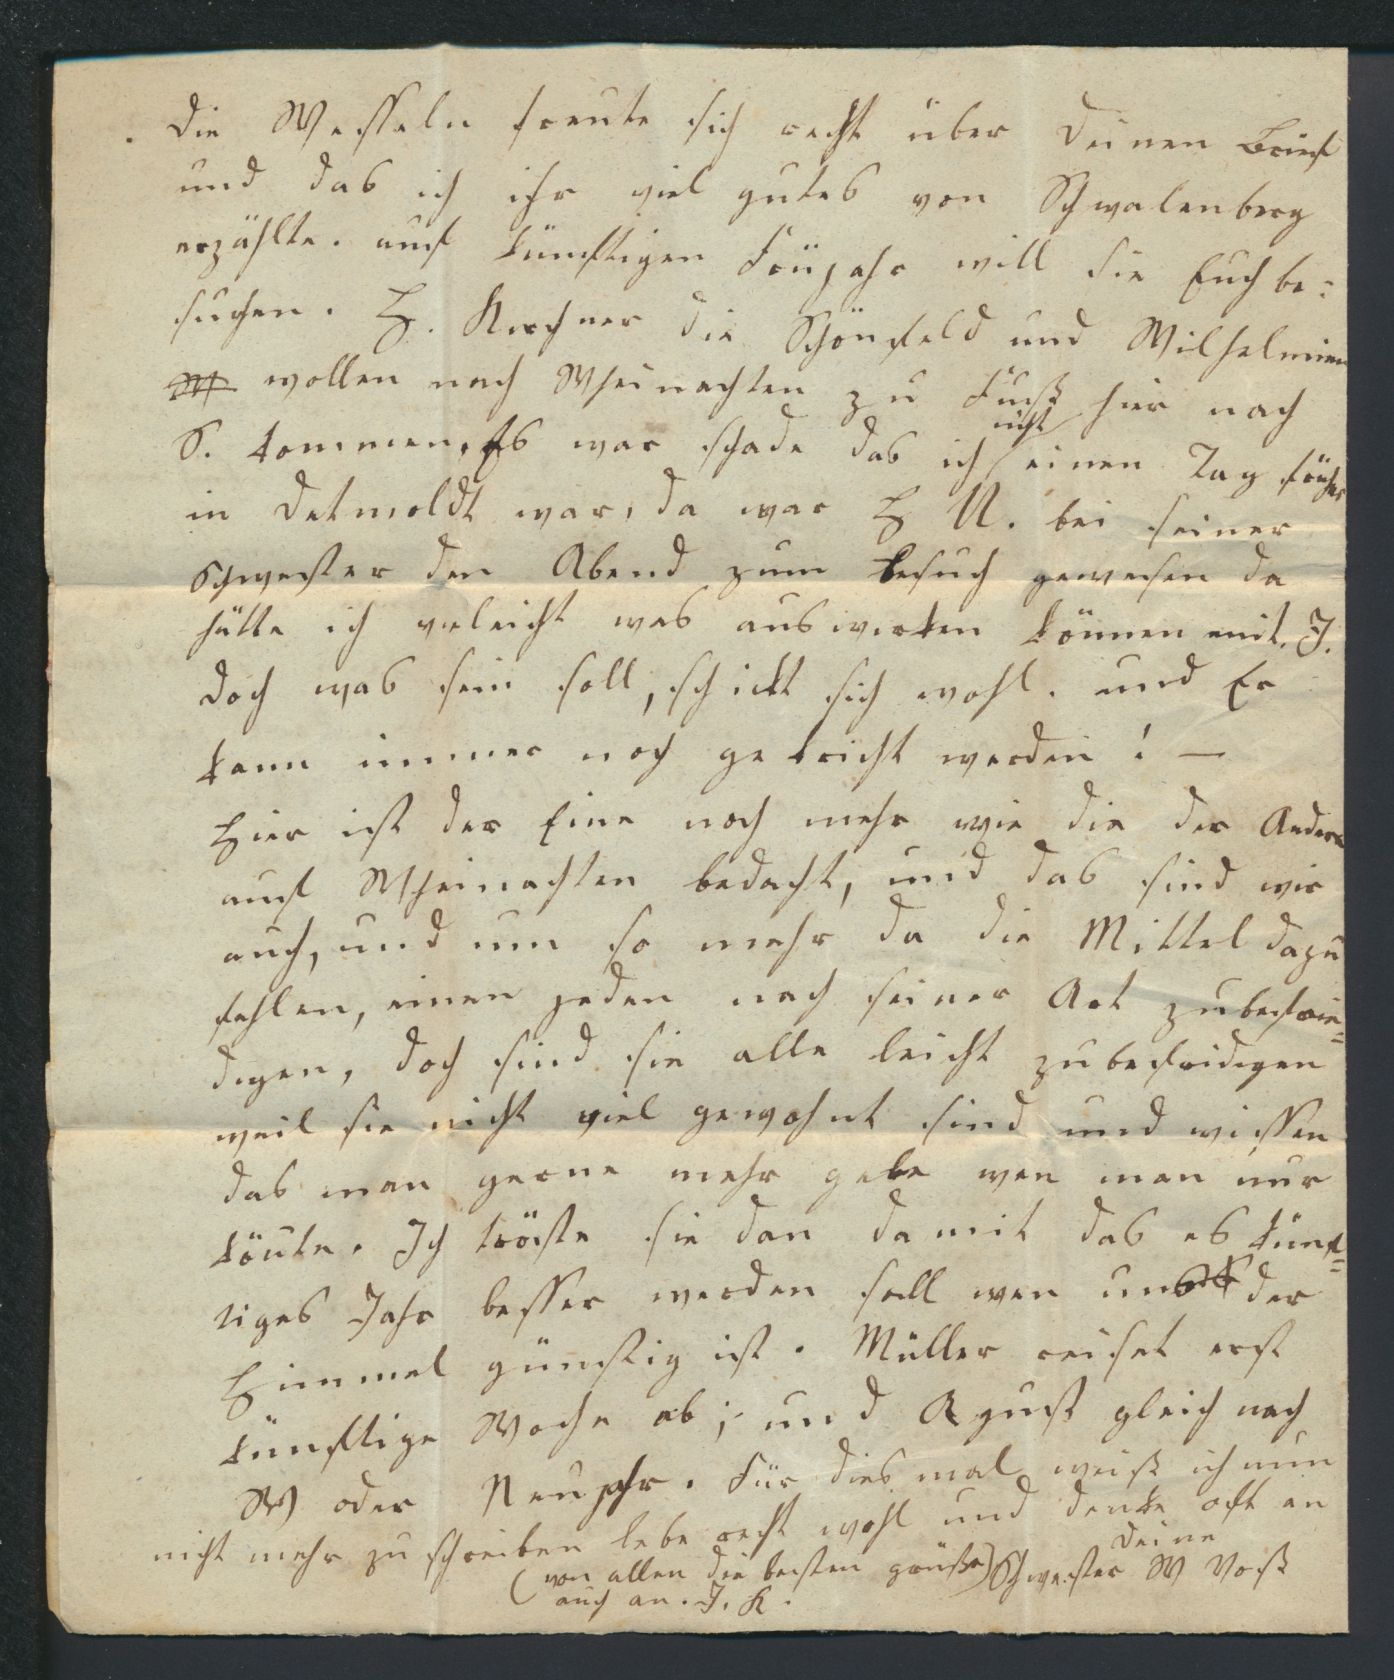 Die Wesseln freute sich recht über Deinen Brief
und das ich ihr viel gutes von Schwalenberg
erzählte. auf künftigen Früjahr will sie Euch be=
suchen. H. Kirchner die Schönfeld und Wilhelmine
wollen nach Wheinachten zu Fuß hier nach
S. kommen, Es war schade das ich nicht einen Tag früher
in Detmoldt war, da war H N. bei seiner
Schwester den Abend zum besuch gewesen da
hätte ich vieleicht was auswirken können mit. J.
doch was sein soll, schickt sich wohl. und Er
kann immer noch gekricht werden! —
Hier ist der Eine noch mehr wie die der Andere
auf Wheinachten bedacht, und das sind wir
auch, und um so mehr da die Mittel dazu
fehlen, einen jeden nach seiner Art zubefrie=
digen, doch sind sie alle leicht zubefridigen
weil sie nicht viel gewohnt sind und wissen
das man gerne mehr gebe wen man nur
könte. Ich tröste sie dan damit das es künf=
tiges Jahr besser werden soll wen uns der
Himmel günstig ist. Müller reiset erst
künftige Woche ab; und Agust gleich nach
W oder Neujahr. Für dies mal weiß ich nun
nicht mehr zu schreiben lebe recht wohl und denke oft an
Deine
(von allen die besten grüße) Schwester W Voß
auch an. J. K.